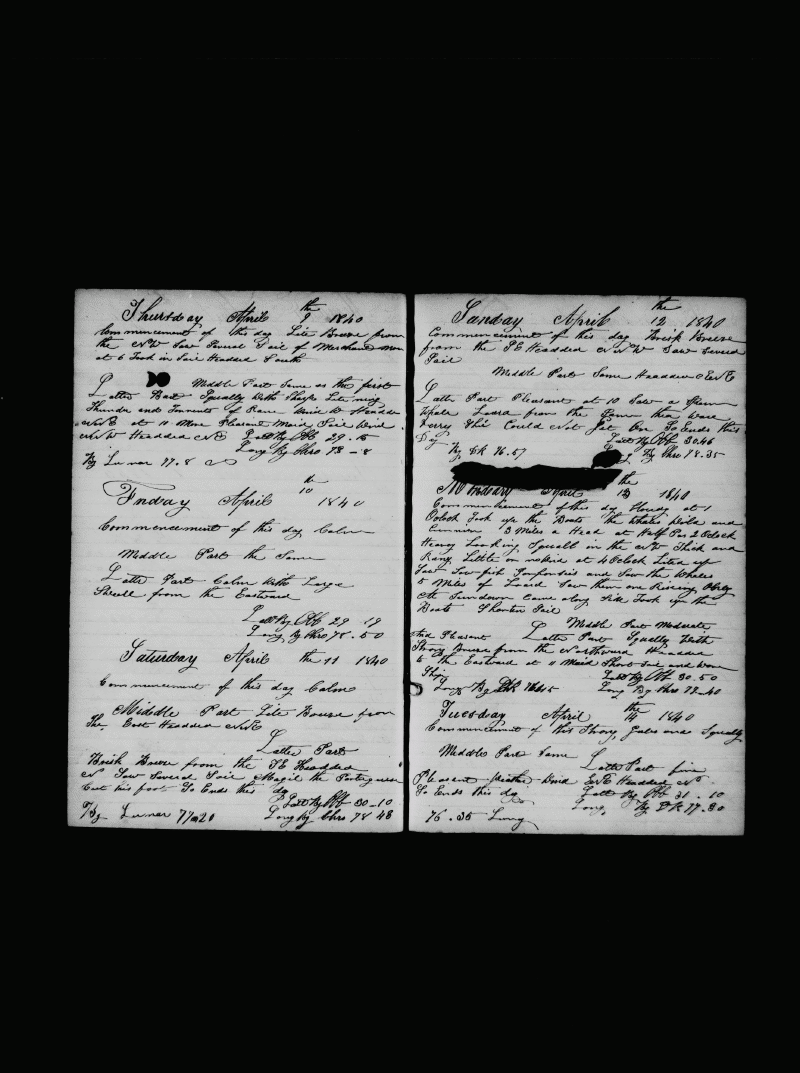 Thursday April 9 the 1840
Commencement of this day Lite Breeze from
the NW Saw Several Sail of Merchant men
at 6 Took in Sail Headed South
Middle Part Same as the first
Latter Part Squally With Sharp Litening
Thunder and Torrents of Rane Wind W Headed
NNE at 11 More Pleasant Maid Sail Wind
NNW Headed NE Latt By Ob 29 - 15
Long By Chro 78 - 8
By Lunar 77.8
Friday April 10 th 1840
Commencement of this day Calm
Middle Part the Same
Latter Part Calm With Large
Swell from the Eastward
Latt By Ob 29 - 19
Long By Chro 78 . 50
Saturday April the 11 1840
Commencement of this day Calm
Middle Part Lite Breeze from
The East Headed NNE
Latter Part
Brisk Breese from the SE Headed
N Saw Several Sail Magil the Portuguese
Cut his foot So Ends this day
Latt By Ob 30 - 10
By Lunar 77 20 Long By Chro 78 48
Sunday April 12 the 1840
Commencement of this day Brisk Breese
from the SE Headed NNW Saw Several
Sail
Middle Part Same Headed ENE
Latter Part Pleasant at 10 Saw a Sperm
Whale Loard from the then Ware
Ferry Shi Could Not Get On So Ends this
Day Latt By Ob 30 46
By DR 76.57 By Chro 78.35
Monday April 13 the 1840
Commencement of this day Cloudy at 1
Oclock Took up the Boats The Whales Wild and
Running 3 Miles a Head at Half Pas 2 Oclock
Heavy Looking Squall in the NW Thick and
Rany Little or no Wind at 4 Oclock Lited up
Saw Saw fish and Saw the Whales
5 Miles of Loard Saw them one Riseing Only
At Sundown Came along Side Took up the
Boats Shorten Sail
Middle Part Moderate
And Pleasant Latter Part Squally With
Strong Breese from the Northward Headed
to the Eastward at 11 Maid Short Sail and Wore
Ship Latt By Ob 30.50
Long By DR Long By Chro 78.40
Tuesday April 14 the 1840
Commencement of this Strong Gales and Squally
Middle Part Same
Latter Part fine
Pleasant Weather Wind ENE Headed N
So Ends this day Latt By Ob 31 . 10
Long By DR 77.30
76 . 35 Lung